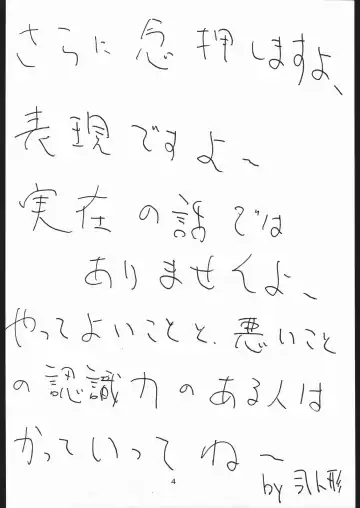 さらに念押しますよ、
表現ですよ～
実在の話では
ありませんよ、
やってよいことと、悪いこと
の認識力のある人は
かっていってね～
4
by 引人形